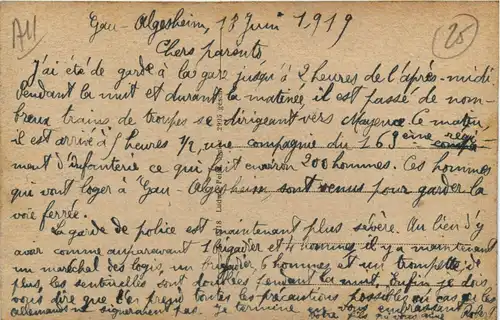 Gau-Algesheim, 17 Juin 1919
25
Chers parents
J'ai été de garde à la gare jusqu'à 2 heures de l'après-midi
Pendant la nuit et durant la matinée, il est passé de nom-
breux trains de troupes se dirigeant vers Mayence le matin,
il est arrivé à 5 heures 1/2, une compagnie du 169ème régi-
ment d'infanterie ce qui fait environ 200 hommes. Ces hommes
qui vont loger à Gau-Algesheim sont venus pour garder la
voie ferrée.
La garde de police est maintenant plus sévère. Au lieu d'y
avoir comme auparavant 1 brigadier et 4 hommes il y a maintenant
un maréchal des logis, un brigadier, 6 hommes et un trompette, de
plus, les sentinelles sont doublées pendant la nuit. Enfin je dois
vous dire que l'on prend toutes les précautions possibles au cas où les
allemands ne signeraient pas. Je termine vous embrassant